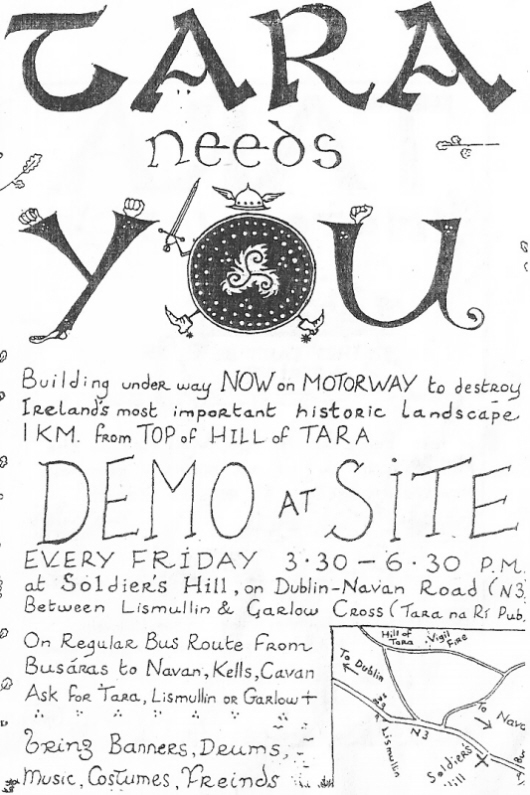 TARA
needs
YOU
Building under way NOW on MOTORWAY to destroy
Ireland's most important historic landscape
1 KM. from TOP of HILL of TARA
DEMO AT SITE
EVERY FRIDAY 3·30 – 6·30 P.M.
at Soldier's Hill, on Dublin-Navan Road (N3,
Between Lismullin & Garlow Cross (Tara na Rí Pub.
On Regular Bus Route From
Busáras to Navan, Kells, Cavan
Ask for Tara, Lismullin or Garlow +
Bring Banners, Drums,
Music, Costumes, Freinds
Hill of Tara
Vigil Fire
To Dublin
N3
Lismullin
N3
Soldier's Hill
X
To Nava